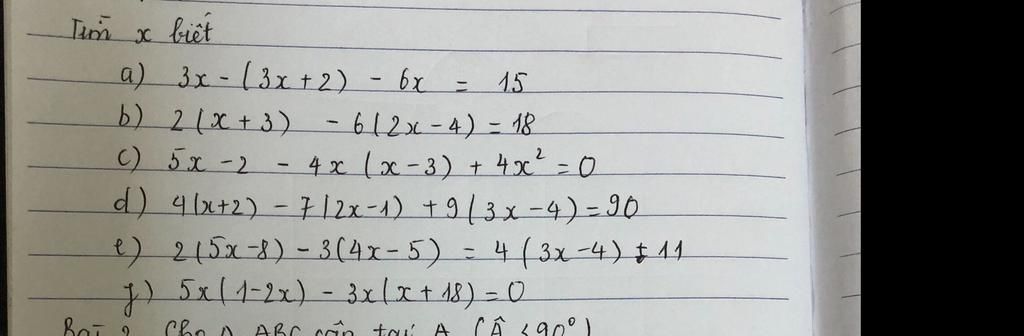 Tìm x biết
a) 3x - (3x + 2) - 6x = 15
b) 2(x + 3) - 6(2x - 4) = 18
c) 5x - 2 - 4x (x - 3) + 4x² = 0
d) 4(x+2) - 7(2x-1) + 9(3x - 4) = 90
e) 2(5x-8) - 3(4x - 5) = 4(3x-4) + 11
f) 5x(1-2x) - 3x(x + 18) = 0
Bài 2 Cho Δ ABC cân tại A (Â < 90°)